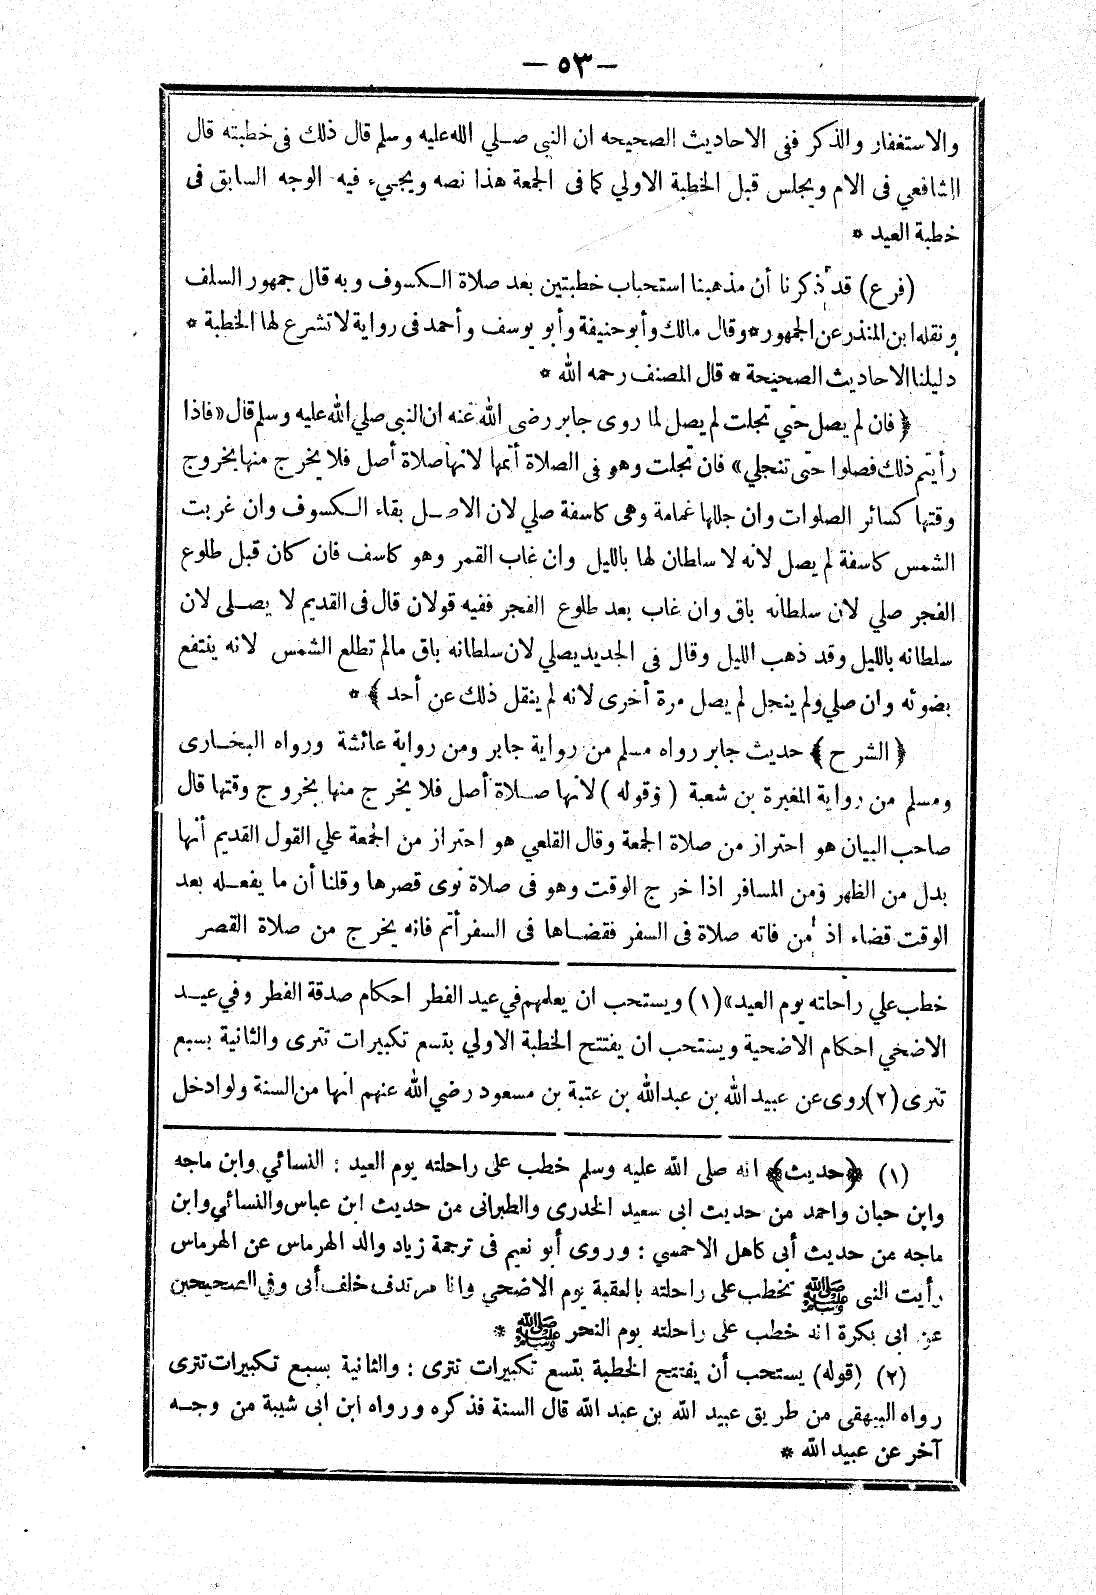 — ٥٣ —
والاستغفار والذكر ففى الاحاديث الصحيحه ان النبى صلي الله عليه وسلم قال ذلك فى خطبته قال
الشافعي فى الام ويجلس قبل الخطبة الاولي كما فى الجمعة هذا نصه ويجيء فيه الوجه السابق فى
خطبة العيد *
(فرع) قد ذكرنا أن مذهبنا استحباب خطبتين بعد صلاة الكسوف وبه قال جمهور السلف
ونقله ابن المنذر عن الجمهور * وقال مالك وأبو حنيفة وأبو يوسف وأحمد فى رواية لا تشرع لها الخطبة *
دليلنا الاحاديث الصحيحة * قال المصنف رحمه الله *
﴿ فان لم يصل حتي تجلت لم يصل لما روى جابر رضى الله عنه ان النبى صلي الله عليه وسلم قال «فاذا
رأيتم ذلك فصلوا حتى تنجلي» فان تجلت وهو فى الصلاة أتمها لانها صلاة أصل فلا يخرج منها بخروج
وقتها كسائر الصلوات وان جللها غمامة وهى كاسفة صلي لان الاصل بقاء الكسوف وان غربت
الشمس كاسفة لم يصل لانه لا سلطان لها بالليل وان غاب القمر وهو كاسف فان كان قبل طلوع
الفجر صلي لان سلطانه باق وان غاب بعد طلوع الفجر ففيه قولان قال فى القديم لا يصلى لان
سلطانه بالليل وقد ذهب الليل وقال فى الجديد يصلي لان سلطانه باق مالم تطلع الشمس لانه ينتفع
بضوئه وان صلي ولم ينجل لم يصل مرة أخرى لانه لم ينقل ذلك عن أحد ﴾ *
﴿ الشرح ﴾ حديث جابر رواه مسلم من رواية جابر ومن رواية عائشة ورواه البخارى
ومسلم من رواية المغيرة بن شعبة ( وقوله ) لانها صلاة أصل فلا يخرج منها بخروج وقتها قال
صاحب البيان هو احتراز من صلاة الجمعة وقال القلعي هو احتراز من الجمعة علي القول القديم أنها
بدل من الظهر ومن المسافر اذا خرج الوقت وهو فى صلاة نوى قصرها وقلنا أن ما يفعله بعد
الوقت قضاء اذ من فاته صلاة فى السفر فقضاها فى السفر أتم فانه يخرج من صلاة القصر
خطب علي راحلته يوم العيد» (١) ويستحب ان يعلمهم في عيد الفطر احكام صدقة الفطر وفي عيد
الاضخي احكام الاضحية ويستحب ان يفتتح الخطبة الاولي بتسع تكبيرات تترى والثانية بسبع
تترى (٢) روى عن عبيد الله بن عبد الله بن عتبة بن مسعود رضي الله عنهم انها من السنة ولو ادخل
(١) ﴿حديث﴾ انه صلى الله عليه وسلم خطب على راحلته يوم العيد : النسائي وابن ماجه
وابن حبان واحمد من حديث ابى سعيد الخدرى والطبرانى من حديث ابن عباس والنسائي وابن
ماجه من حديث أبى كاهل الاحمسي : وروى أبو نعيم فى ترجمة زياد والد الهرماس عن الهرماس
رأيت النبى ﷺ يخطب على راحلته بالعقبة يوم الاضحي وانا مرتدف خلف أبى وفي الصحيحين
عن ابى بكرة انه خطب على راحلته يوم النحر ﷺ *
(٢) (قوله) يستحب أن يفتتح الخطبة بتسع تكبيرات تترى : والثانية بسبع تكبيرات تترى
رواه البيهقى من طريق عبيد الله بن عبد الله قال السنة فذكره ورواه ابن ابى شيبة من وجه
آخر عن عبيد الله *